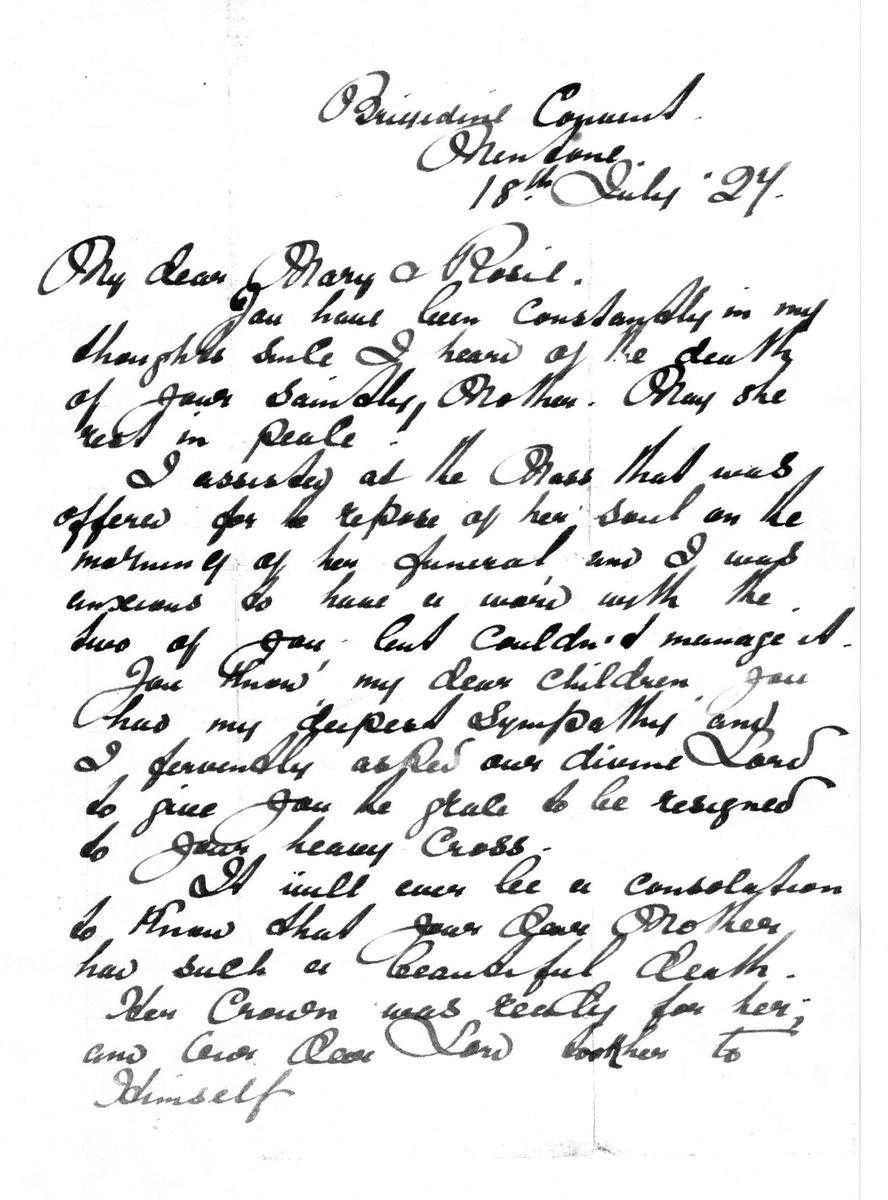 Brigidine Convent.
Mentone.
18th July '27.
My dear Mary & Rosie.
You have been constantly in my
thoughts since I heard of the death
of your saintly, Mother. May she
rest in peace.
I assisted at the Mass that was
offered for the repose of her soul on the
morning of her funeral and I was
anxious to have a word with the
two of you but couldn't manage it.
You know my dear children you
had my deepest sympathy and
I fervently asked our divine Lord
to give you the grace to be resigned
to your heavy Cross.
It will ever be a consolation
to know that your dear Mother
had such a beautiful death.
Her Crown was ready for her;
and our dear Lord took her to
Himself